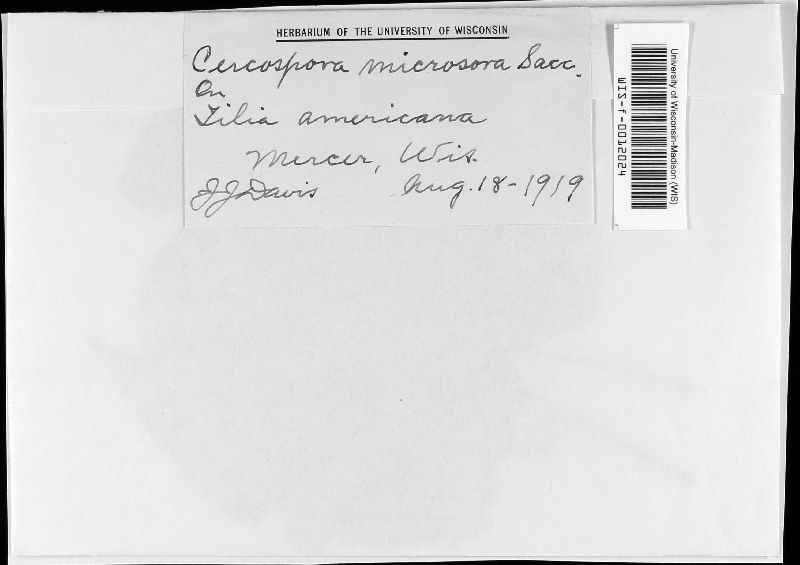 HERBARIUM OF THE UNIVERSITY OF WISCONSIN
Cercospora microsora Sacc.
On
Tilia americana
Mercer, Wis.
JJDavis Aug. 18-1919
University of Wisconsin-Madison (WIS)
WIS-f-0012024